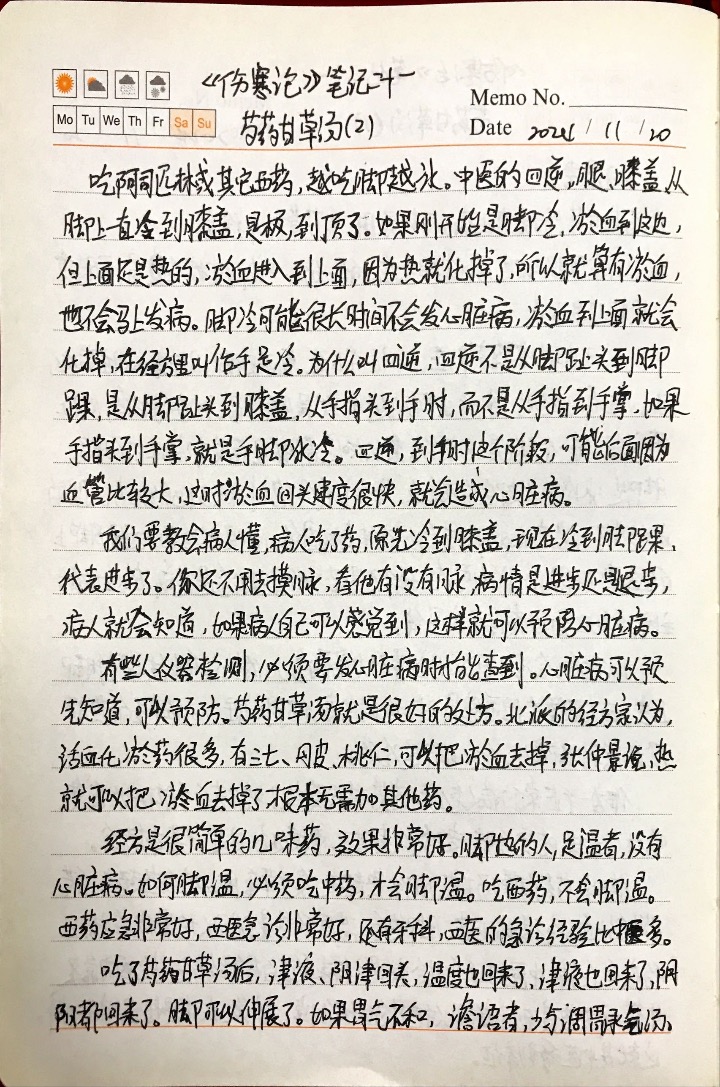 《伤寒论》笔记二十一
Memo No.
Mo Tu We Th Fr Sa Su
芍药甘草汤(2)
Date 2024 / 11 / 20
吃阿司匹林或其它西药,越吃脚越冰。中医的四逆,腿、膝盖,从
脚上一直冷到膝盖,是极,到顶了。如果刚开始是脚冷,淤血到这边,
但上面还是热的,淤血进入到上面,因为热就化掉了,所以就算有淤血,
也不会马上发病。脚冷可能很长时间不会发心脏病,淤血到上面就会
化掉,在经方里叫作手足冷。为什么叫四逆,四逆不是从脚趾头到脚
踝,是从脚趾头到膝盖,从手指头到手肘,而不是从手指到手掌,如果
手指头到手掌,就是手脚冰冷。四逆,到手肘这个阶段,可能后面因为
血管比较大,这时淤血回头速度很快,就会造成心脏病。
我们要教会病人懂,病人吃了药,原先冷到膝盖,现在冷到脚踝,
代表进步了。你还不用去摸脉,看他有没有脉,病情是进步还是退步,
病人就会知道,如果病人自己可以感觉到,这样就可以预防心脏病。
有些人仪器检测,必须要发心脏病时才查到。心脏病可以预
先知道,可以预防。芍药甘草汤就是很好的处方。北派的经方家认为,
活血化淤药很多,有三七、丹皮、桃仁,可以把淤血去掉,张仲景说,热
就可以把淤血去掉了根本无需加其他药。
经方是很简单的几味药,效果非常好。脚边的人,足温者,没有
心脏病。如何脚温,必须吃中药,才会脚温。吃西药,不会脚温。
西药应急非常好,西医急诊非常好,还有牙科,西医的急诊经验比中医多。
吃了芍药甘草汤后,津液、阴津回头,温度也回来了,津液也回来了,阴
阳都回来了。脚可以伸展了。如果胃气不和,谵语者,少与调胃承气汤。